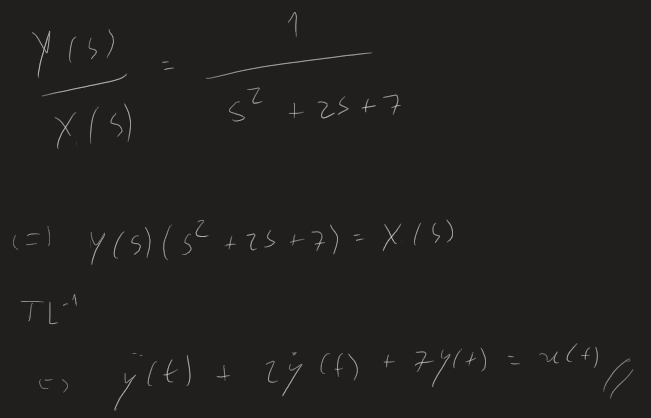 Y(s)/X(s) = 1/(s² + 2s + 7)
(=) Y(s)(s² + 2s + 7) = X(s)
TL⁻¹
(=) ÿ(t) + 2ẏ(t) + 7y(t) = x(t) //